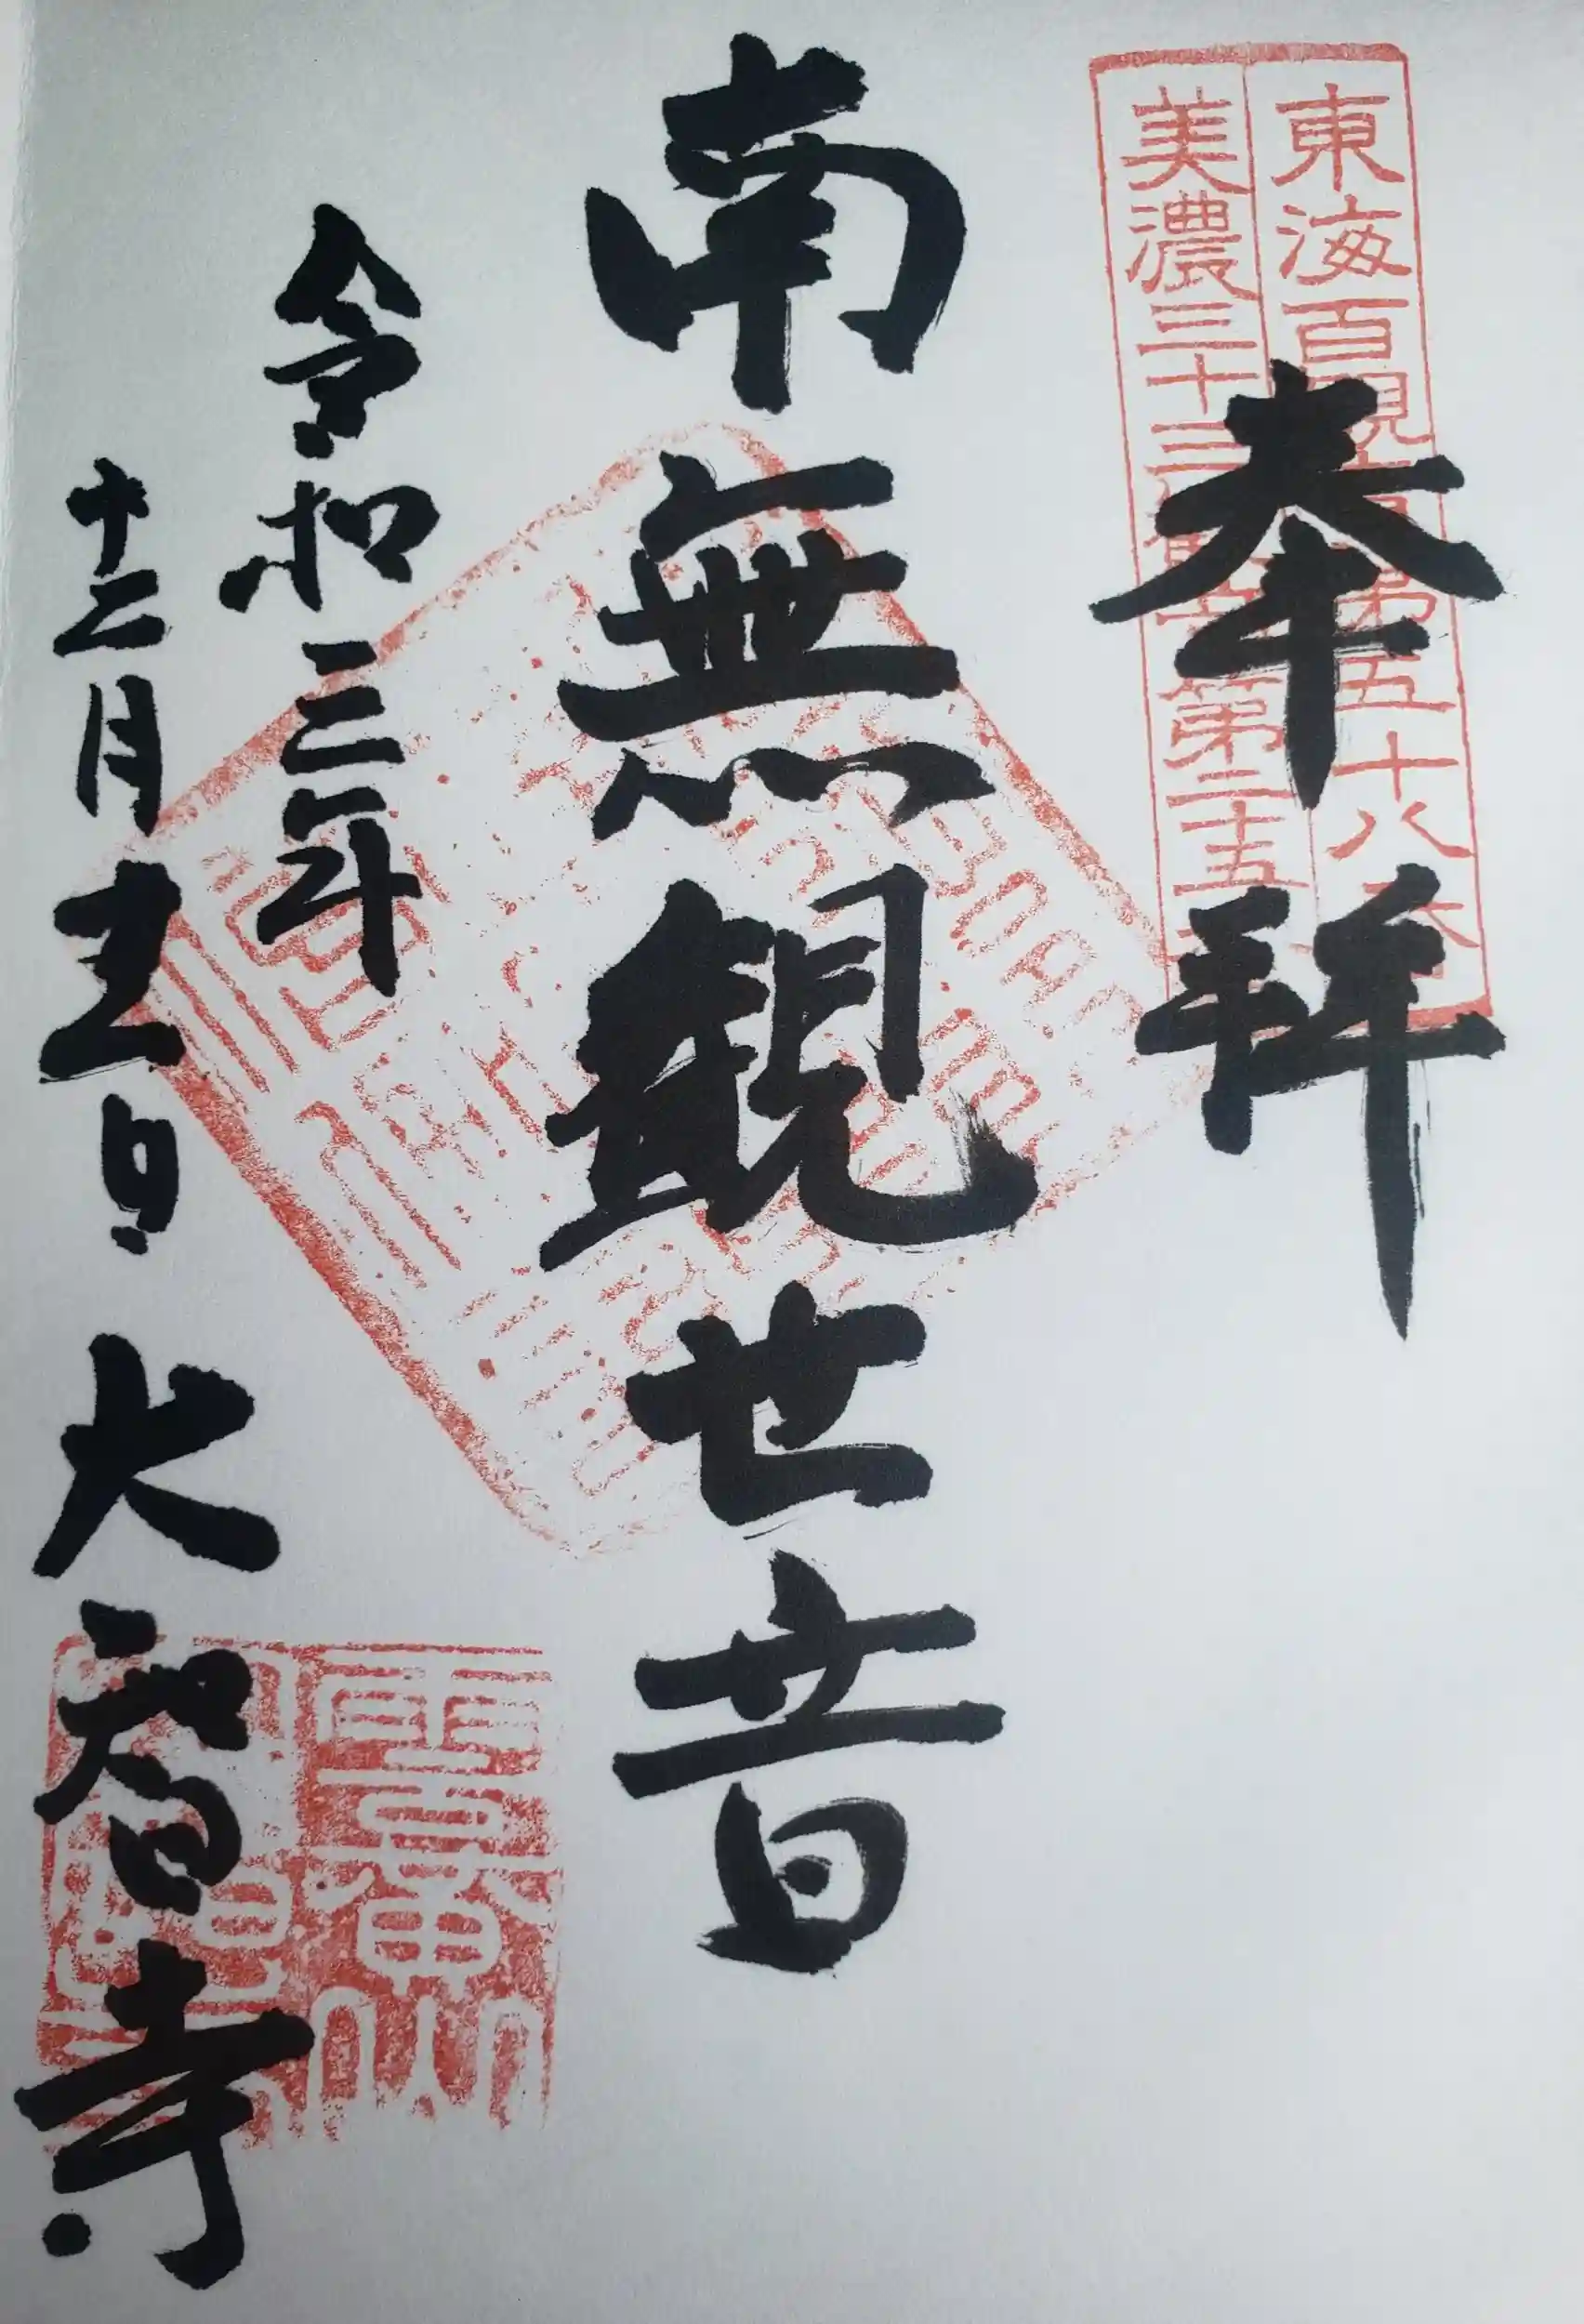 東海百観音第五十八番
美濃三十三観音第二十五番
奉拝
南無観世音
令和三年
十二月十五日
大智寺
雲黄山